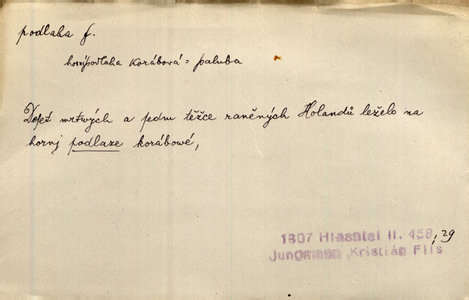 podlaha f.
horní podlaha korábová = paluba
Deset mrtvých a jedn těžce raněných Holandů leželo na
horní podlaze korábowé,
1807 Hlasatel II. 458, 29
Jungmann, Kristián Flís